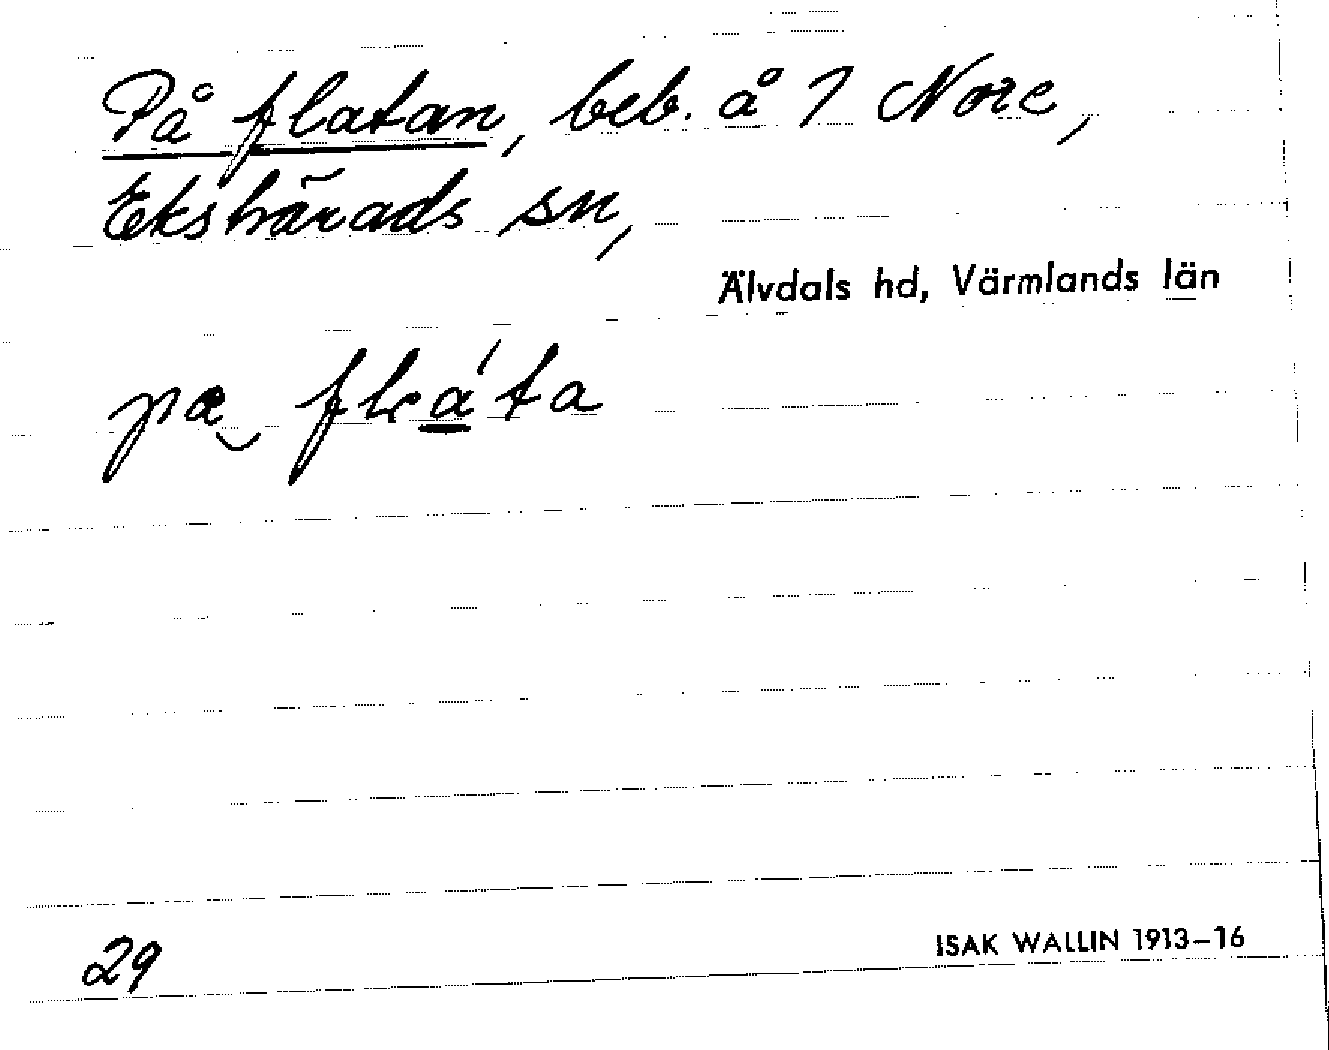 På flatan, beb. å 1 Nore,
Ekshärads sn,
Älvdals hd, Värmlands län
pæ flata
29
ISAK WALLIN 1913–16